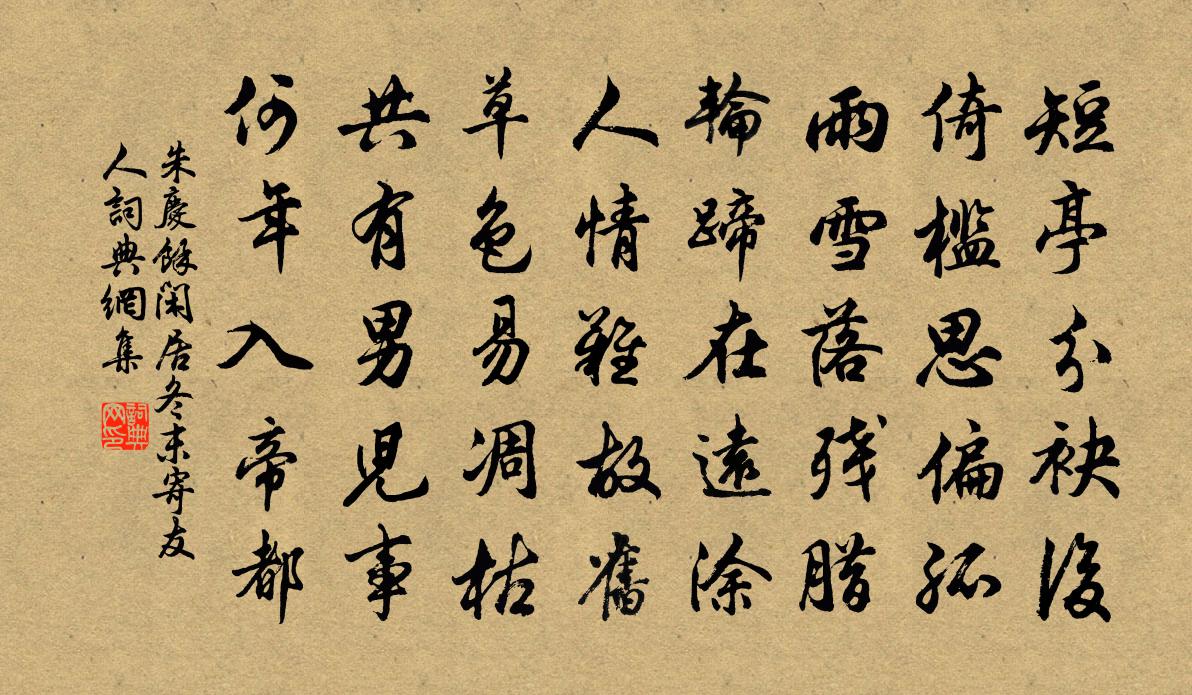 短亭分袂後
倚檻思偏孤
雨雪落残腊
輪蹄在遠涂
人情難故舊
草色易凋枯
共有男兒事
何年入帝都
朱慶餘閑居冬末寄友
人詞典網集
詞典
网印